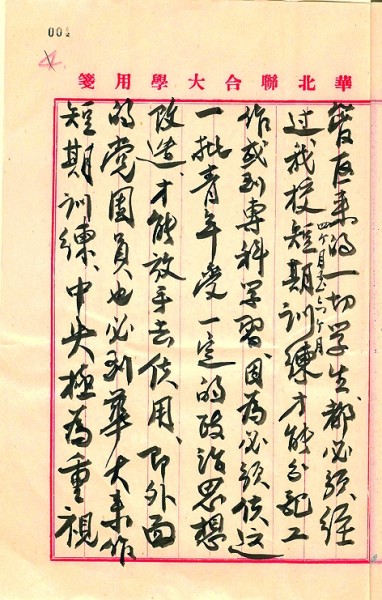 001
華北聯合大學用箋
管区来的一切学生、都必须经
过我校短期訓練才能分配工
四个月至六个月
作或到專科学習。因為必须使这
一批青年受一定的政治思想
改造、才能放手去使用、即外面
的党团員也必到華大来作
短期訓練、中央極為重視